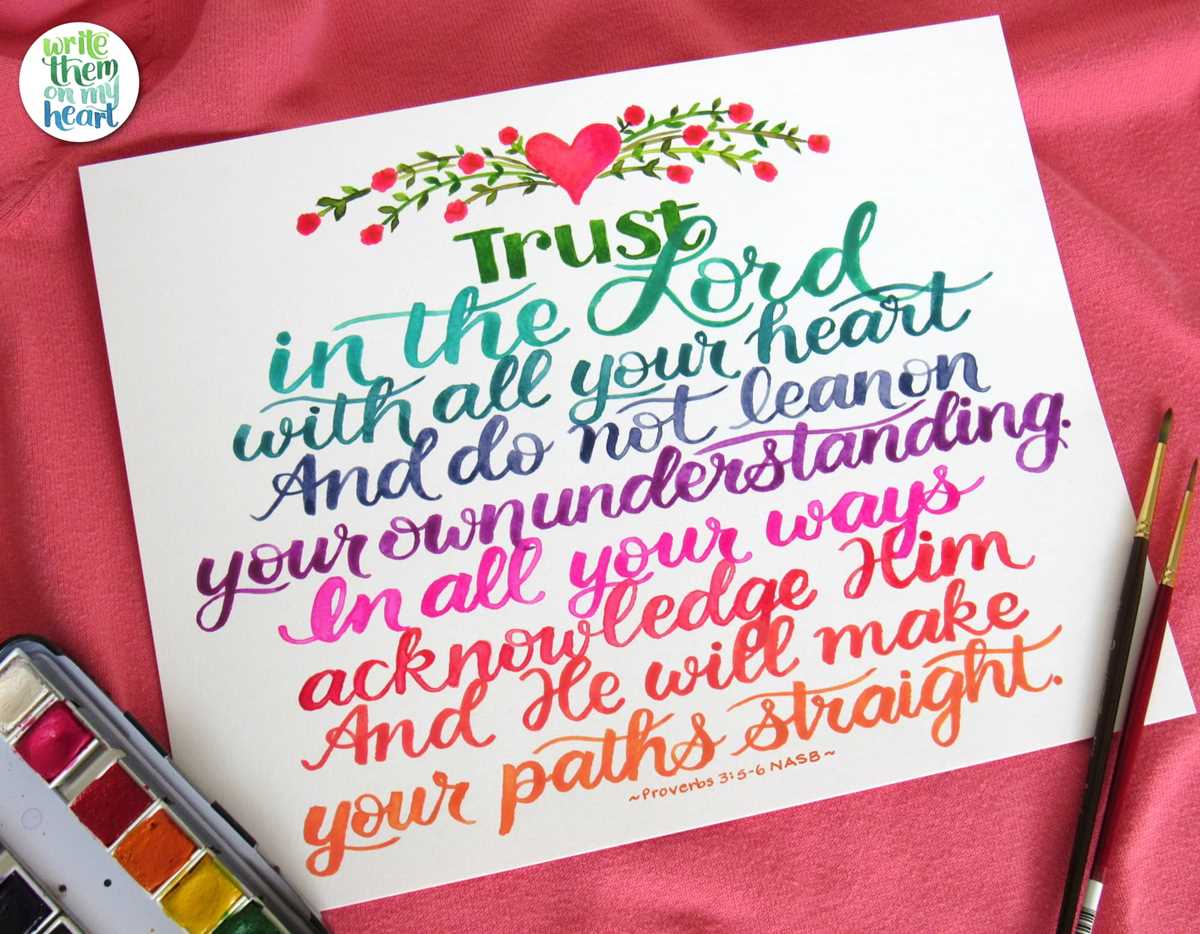 write
them
on my
heart
Trust
in the Lord
with all your heart
And do not lean on
your own understanding.
In all your ways
acknowledge Him
And He will make
your paths straight.
~Proverbs 3:5-6 NASB~